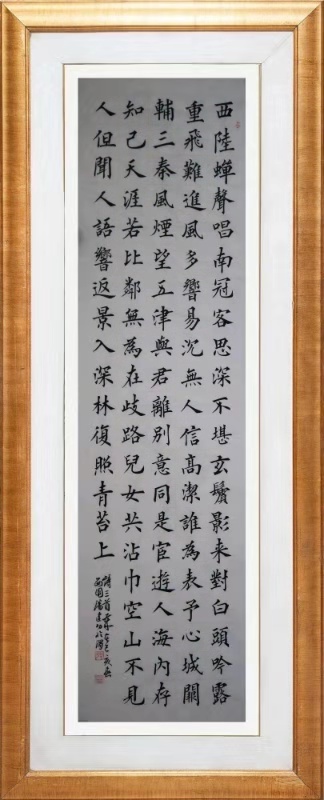 西陸蟬聲唱南冠客思深不堪玄鬢影来對白頭吟露
重飛難進風多響易沉無人信高潔誰為表予心城闕
輔三秦風煙望五津與君離別意同是宦遊人海內存
知己天涯若比鄰無為在歧路兒女共沾巾空山不見
人但聞人語響返景入深林復照青苔上
詩三首